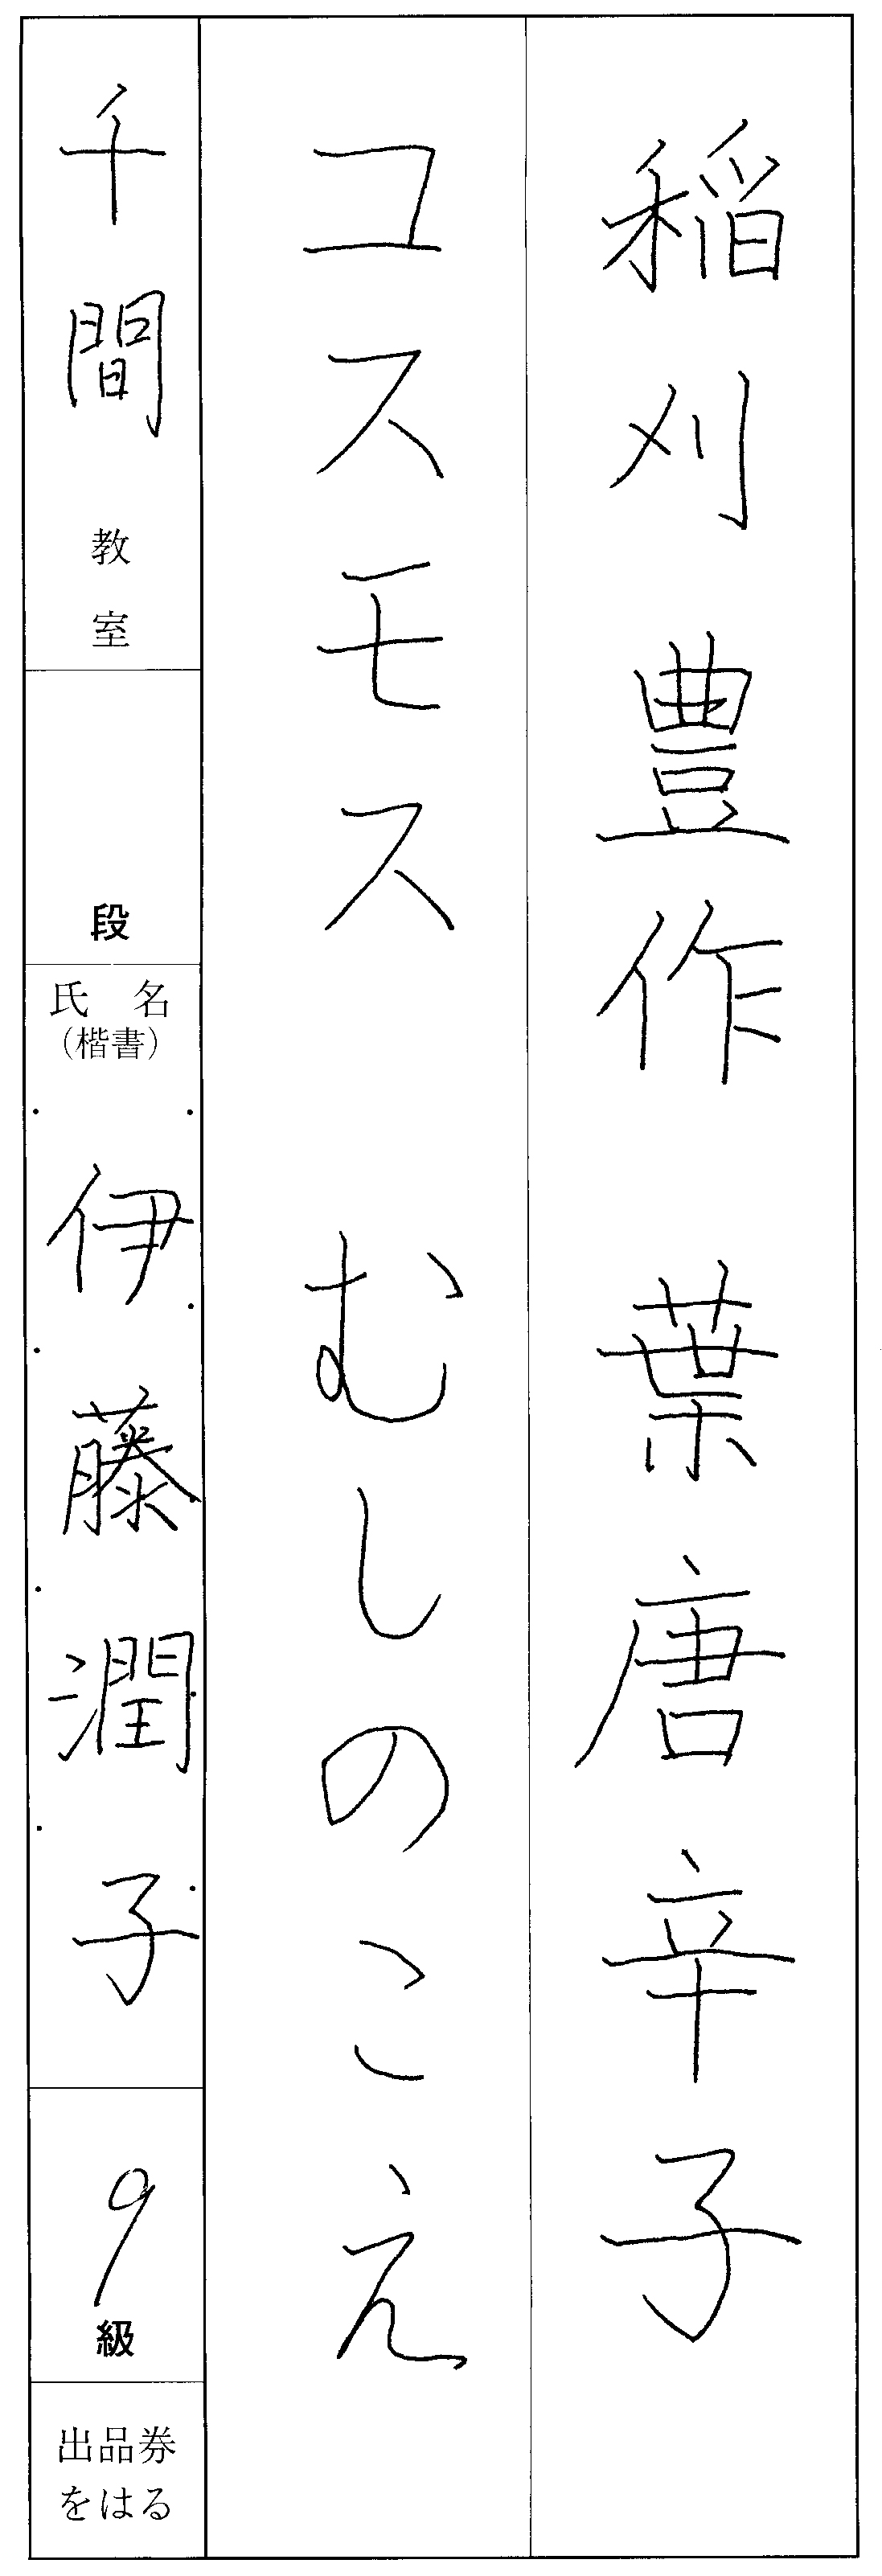 稲刈豊作 葉唐辛子
コスモス むしのこえ
千間教室
段
氏名
(楷書)
伊藤潤子
9級
出品券
をはる